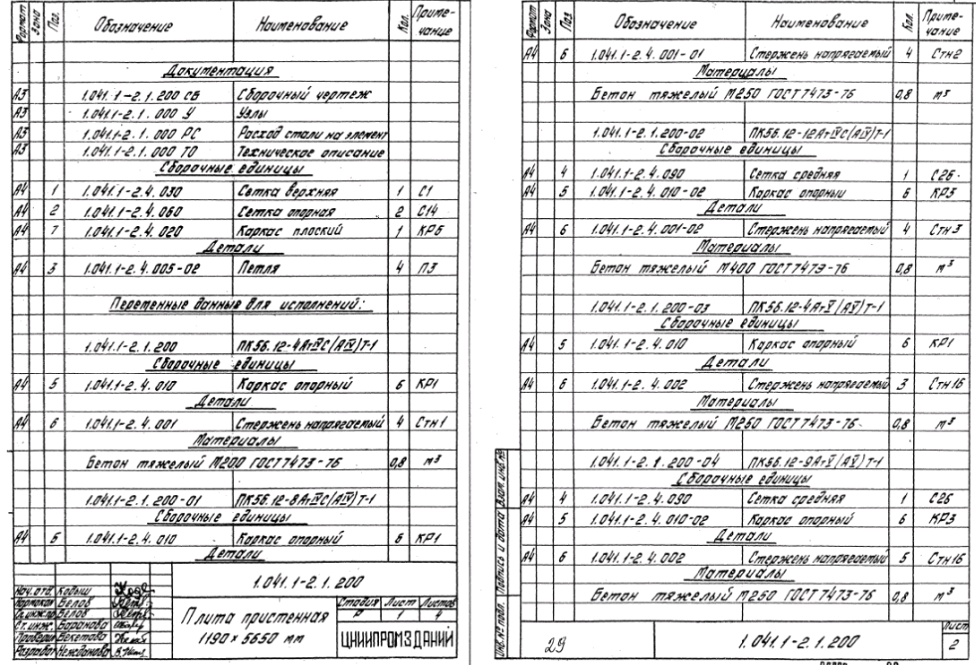 Формат Зона Поз. Обозначение Наименование Кол. Приме-чание
Документация
А3 1.041.1-2.1.200 СБ Сборочный чертеж
А3 1.041.1-2.1.000 У Узлы
А3 1.041.1-2.1.000 РС Расход стали на элемент
А3 1.041.1-2.1.000 ТО Техническое описание
Сборочные единицы
А4 1 1.041.1-2.4.030 Сетка верхняя 1 С1
А4 2 1.041.1-2.4.060 Сетка опорная 2 С14
А4 7 1.041.1-2.4.020 Каркас плоский 1 КР6
Детали
А4 3 1.041.1-2.4.005-02 Петля 4 П3
Переменные данные для исполнений:
1.041.1-2.1.200 ПК56.12-4АтIVС(АIV)Т-1
Сборочные единицы
А4 5 1.041.1-2.4.010 Каркас опорный 6 КР1
Детали
А4 6 1.041.1-2.4.001 Стержень напрягаемый 4 Стн1
Материалы
Бетон тяжелый М200 ГОСТ 7473-76 0,8 м³
1.041.1-2.1.200-01 ПК56.12-8АтIVС(АIV)Т-1
Сборочные единицы
А4 5 1.041.1-2.4.010 Каркас опорный 6 КР1
Детали
1.041.1-2.1.200
Нач. отд. Кодыш
Белов
Ст. инж. Баранова
Проверил Бекетова
Разработ. Нежданова
Плита пристенная
1190 x 5650 мм
Стадия Лист Листов
Р 1 4
ЦНИИПРОМЗДАНИЙ
Формат Зона Поз Обозначение Наименование Кол. Приме-чание
А4 6 1.041.1-2.4.001-01 Стержень напрягаемый 4 Стн2
Материалы
Бетон тяжелый М250 ГОСТ 7473-76 0,8 м³
1.041.1-2.1.200-02 ПК56.12-12АтIVС(АIV)Т-1
Сборочные единицы
А4 4 1.041.1-2.4.090 Сетка средняя 1 С26
А4 5 1.041.1-2.4.010-02 Каркас опорный 6 КР3
Детали
А4 6 1.041.1-2.4.001-02 Стержень напрягаемый 4 Стн3
Материалы
Бетон тяжелый М400 ГОСТ 7473-76 0,8 м³
1.041.1-2.1.200-03 ПК56.12-4АтV(АV)Т-1
Сборочные единицы
А4 5 1.041.1-2.4.010 Каркас опорный 6 КР1
Детали
А4 6 1.041.1-2.4.002 Стержень напрягаемый 3 Стн16
Материалы
Бетон тяжелый М250 ГОСТ 7473-76 0,8 м³
1.041.1-2.1.200-04 ПК56.12-9АтV(АV)Т-1
Сборочные единицы
А4 4 1.041.1-2.4.090 Сетка средняя 1 С26
А4 5 1.041.1-2.4.010-02 Каркас опорный 6 КР3
Детали
А4 6 1.041.1-2.4.002 Стержень напрягаемый 5 Стн16
Материалы
Бетон тяжелый М250 ГОСТ 7473-76 0,8 м³
Инв. № подл. Подпись и дата Взам. инв. №
29 1.041.1-2.1.200
Лист
2